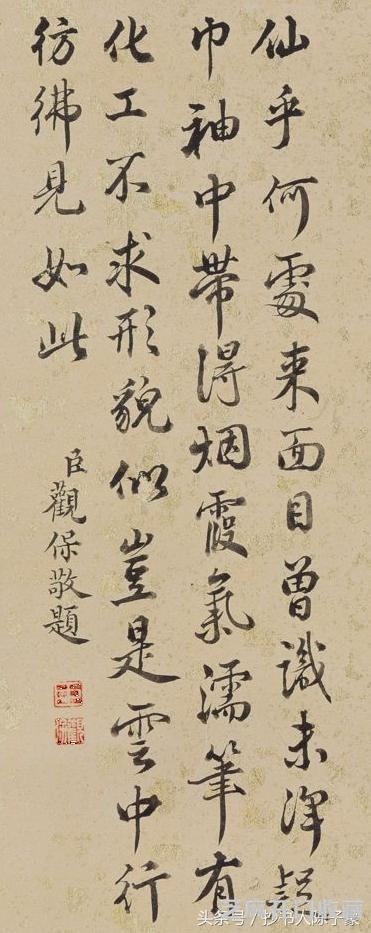 仙乎何處來面目曾識未渾
巾袖中帶得烟霞氣濡筆有
化工不求形貌似豈是雲中行
彷彿見如此
臣觀保敬題
头条号/抄书人陈子